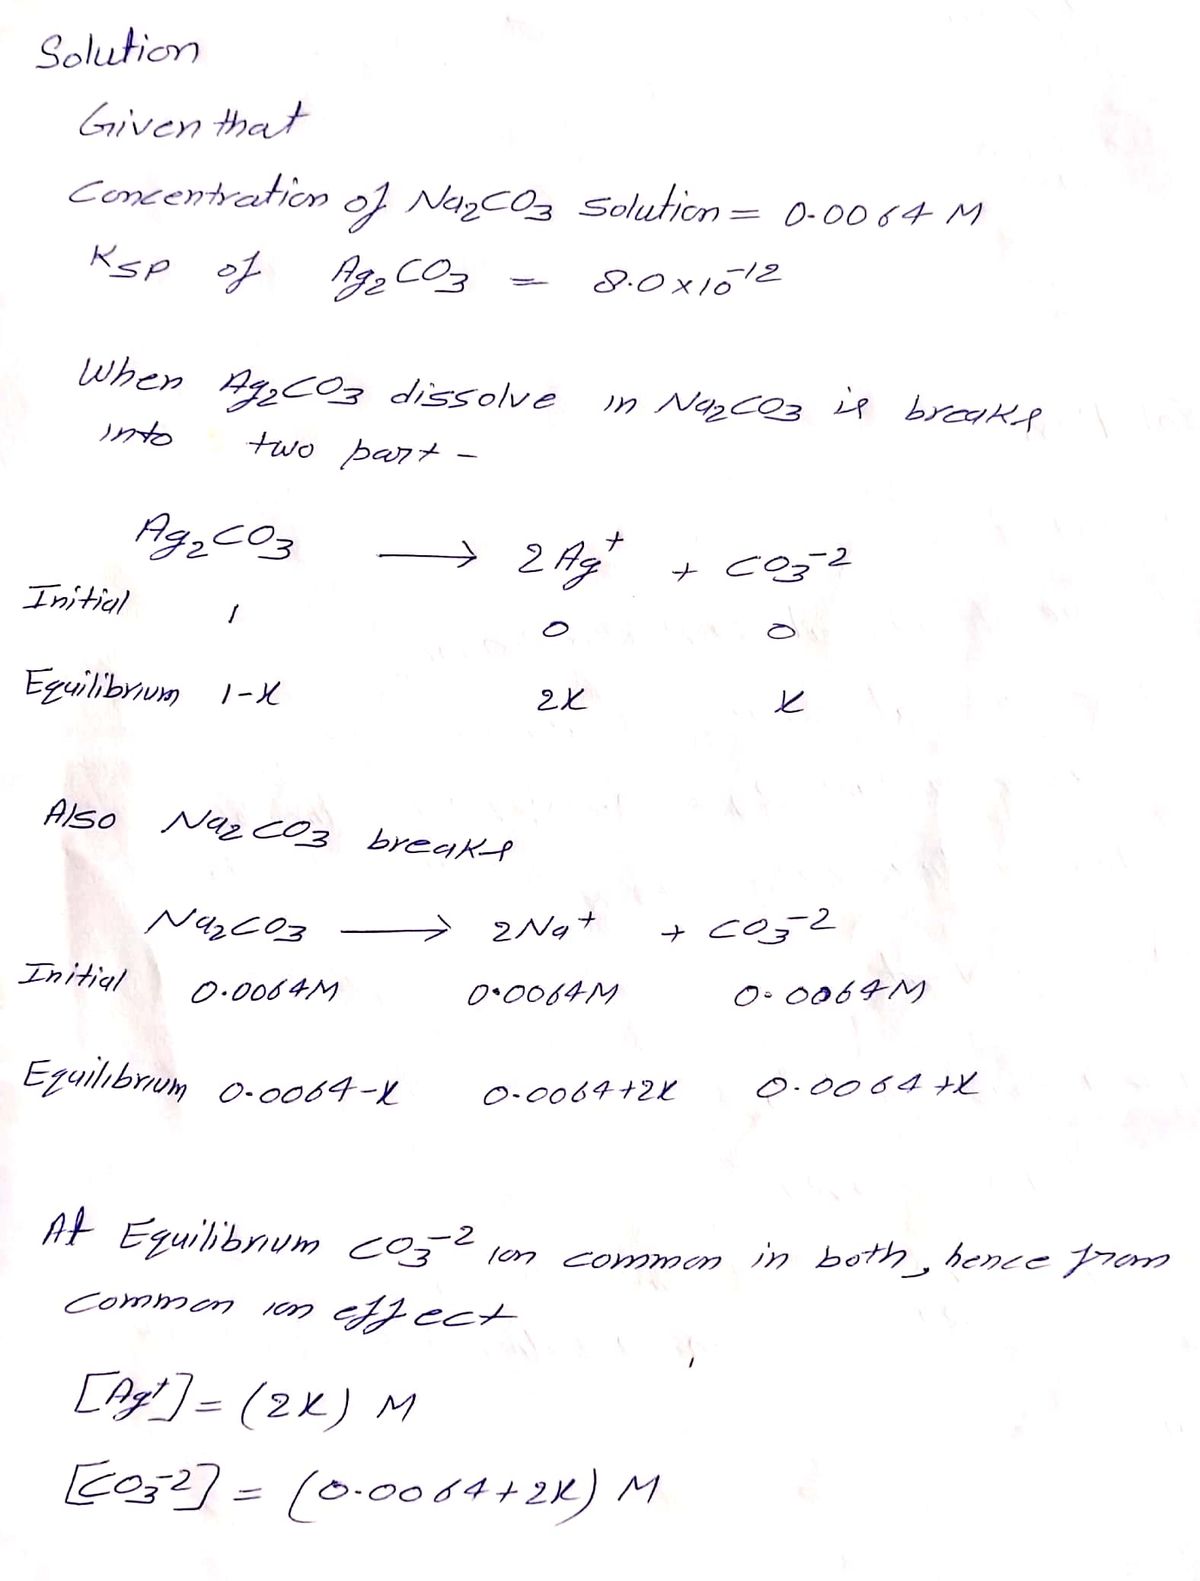 Solution
Given that
Concentration of Na₂CO₃ Solution = 0.0064 M
Ksp of Ag₂CO₃ = 8.0×10⁻¹²
When Ag₂CO₃ dissolve in Na₂CO₃ is breaks
into two part -
Ag₂CO₃ → 2Ag⁺ + CO₃⁻²
Initial 1 0 0
Equilibrium 1-x 2x x
Also Na₂CO₃ breaks
Na₂CO₃ → 2Na⁺ + CO₃⁻²
Initial 0.0064M 0.0064M 0.0064M
Equilibrium 0.0064-x 0.0064+2x 0.0064+x
At Equilibrium CO₃⁻² ion common in both, hence from
common ion effect
[Ag⁺] = (2x) M
[CO₃⁻²] = (0.0064+2x) M